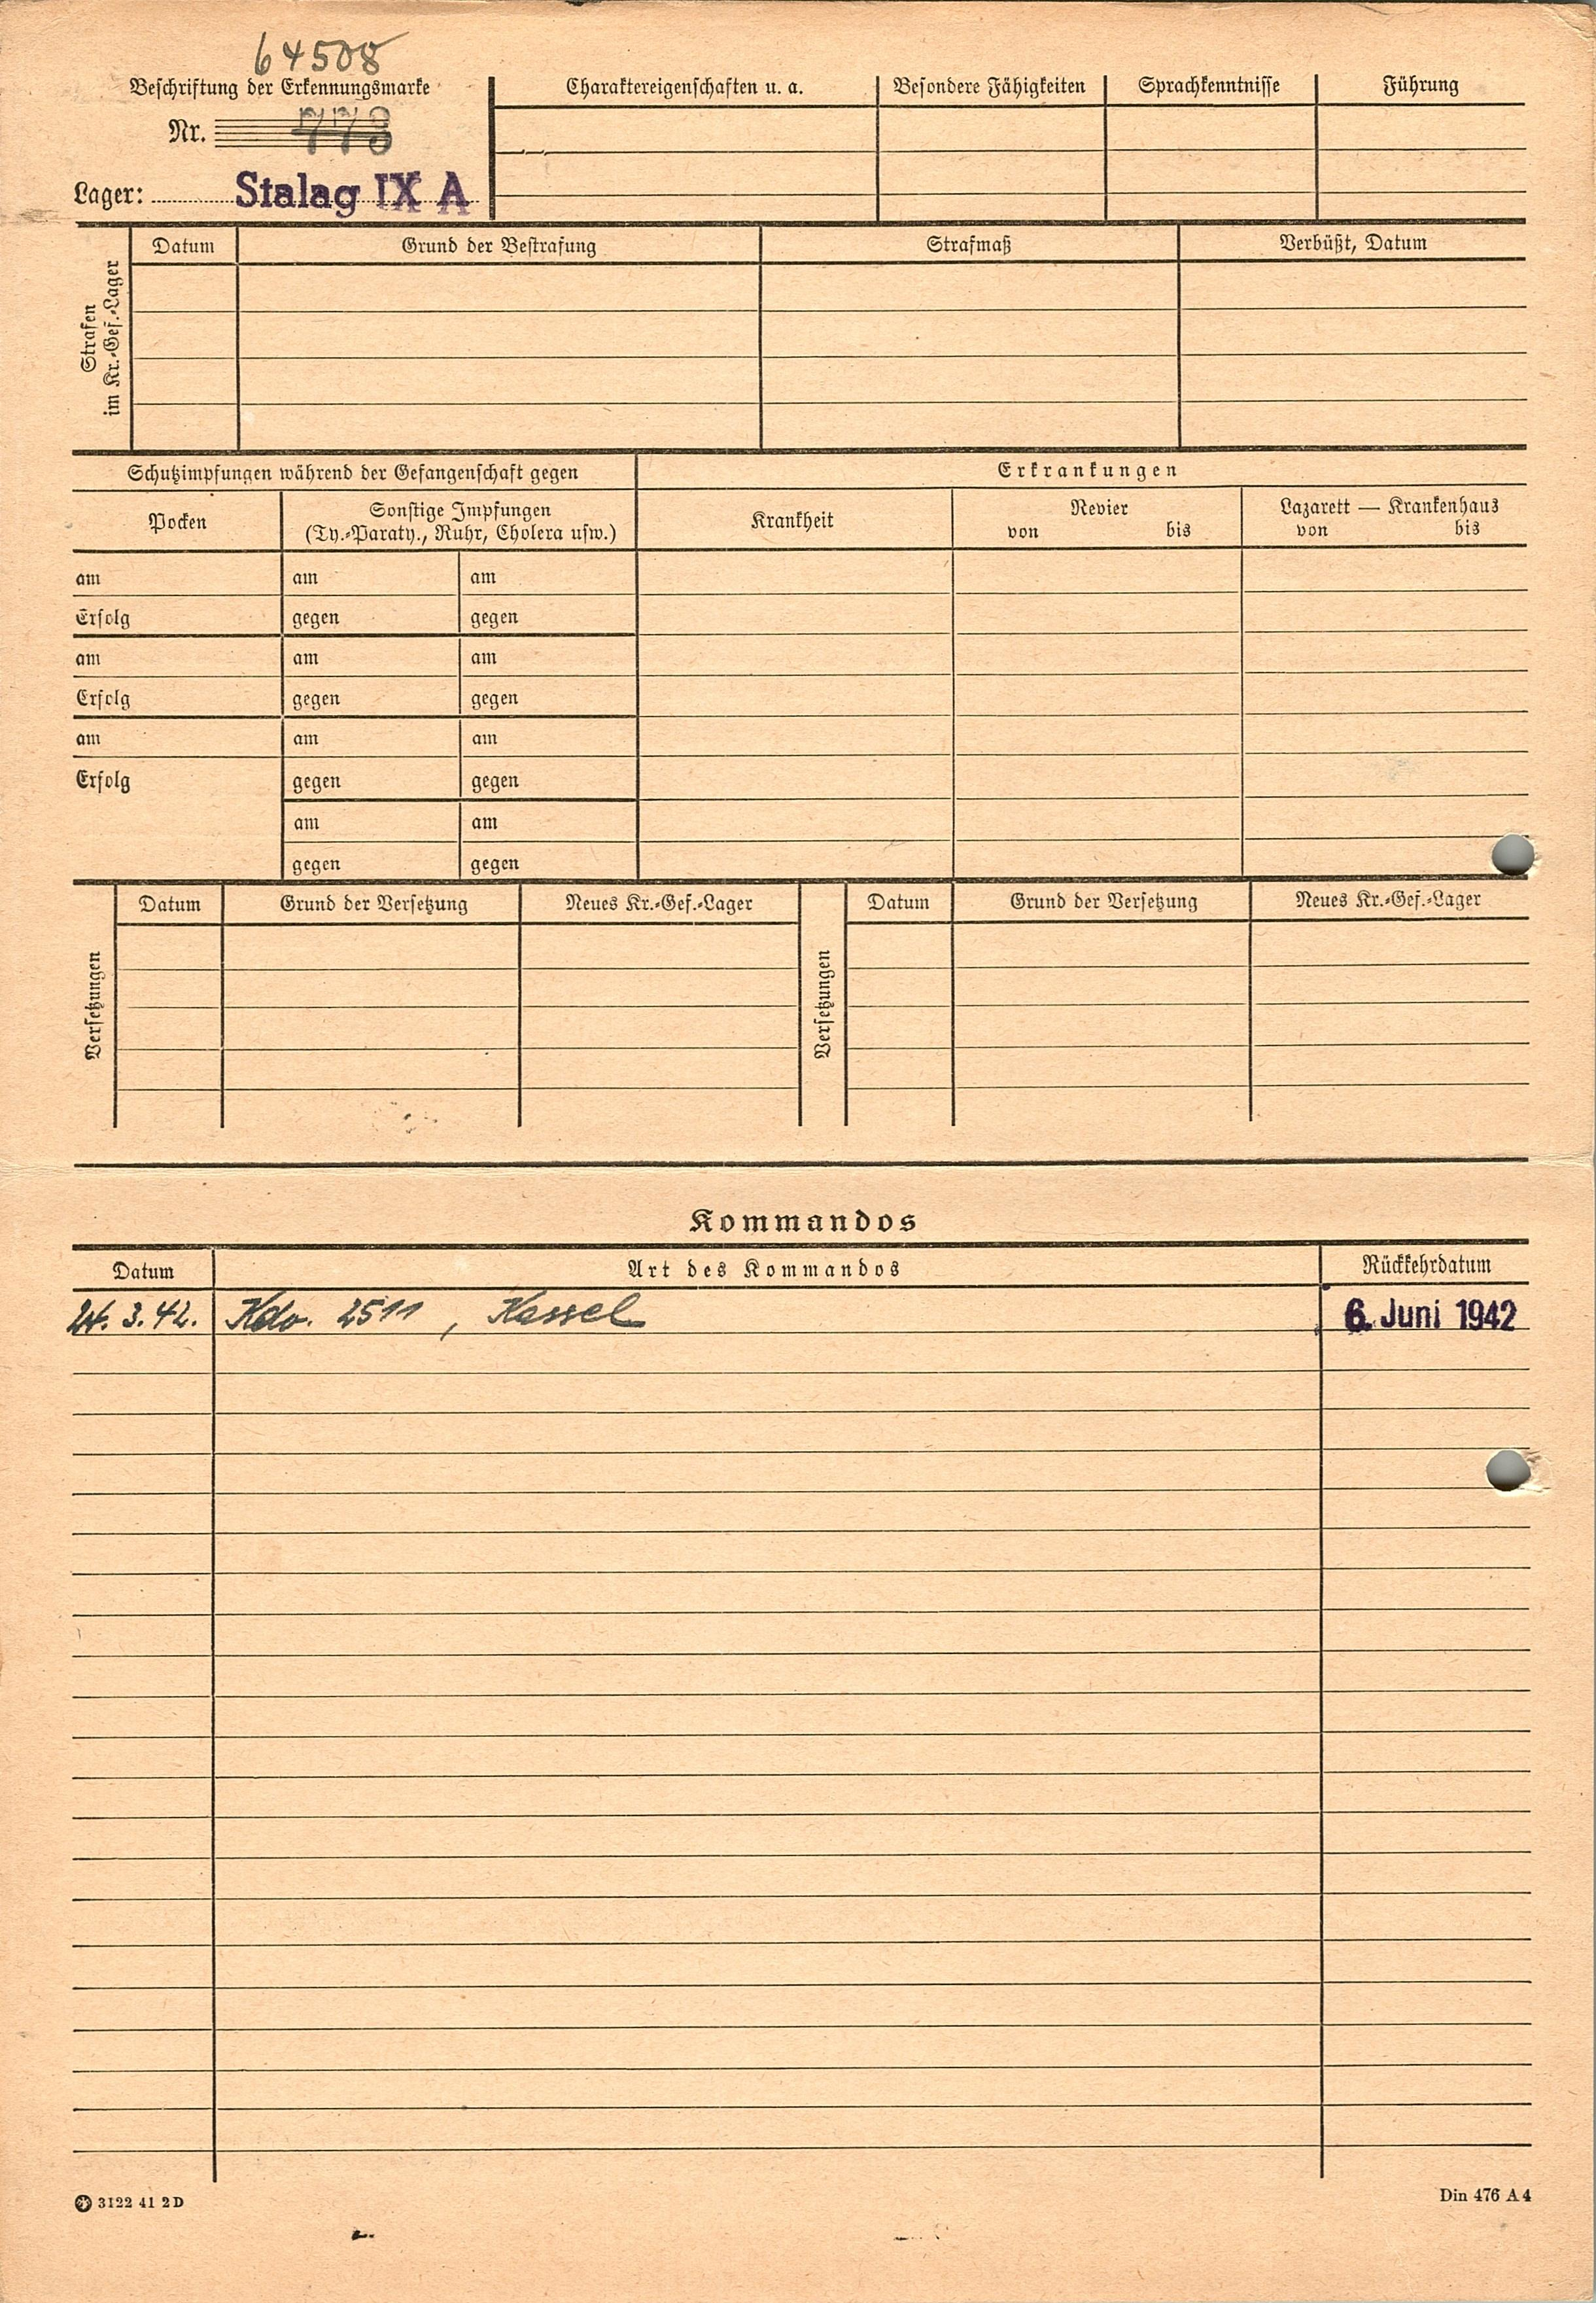 64508
Beschriftung der Erkennungsmarke
Nr. 773
Lager: Stalag IX A
Charaktereigenschaften u. a. Besondere Fähigkeiten Sprachkenntnisse Führung
Strafen
im Kr.-Gef.-Lager
Datum Grund der Bestrafung Strafmaß Verbüßt, Datum
Schutzimpfungen während der Gefangenschaft gegen
Pocken
Sonstige Impfungen
(Ty.-Paraty., Ruhr, Cholera usw.)
Erkrankungen
Krankheit
Revier
von bis
Lazarett — Krankenhaus
von bis
am am am
Erfolg gegen gegen
am am am
Erfolg gegen gegen
am am am
Erfolg gegen gegen
am am
gegen gegen
Versetzungen
Datum Grund der Versetzung Neues Kr.-Gef.-Lager
Versetzungen
Datum Grund der Versetzung Neues Kr.-Gef.-Lager
Kommandos
Datum Art des Kommandos Rückkehrdatum
24. 3. 42. Kdo. 2511, Kassel 6. Juni 1942
3122 41 2 D
Din 476 A 4